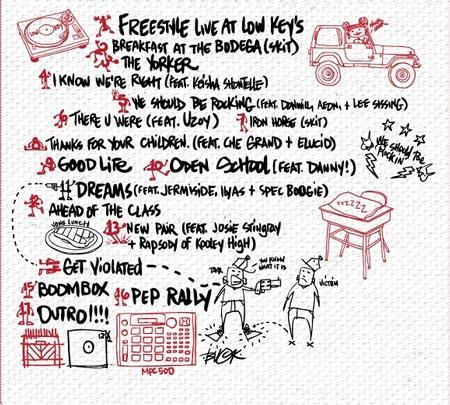 LOW KEY
1 FREESTYLE LIVE AT LOW KEY'S
2 BREAKFAST AT THE BODEGA (SKIT)
3 THE YORKER
4 I KNOW WE'RE RIGHT (FEAT. KEISHA SHONTELLE)
5 WE SHOULD BE ROCKING (FEAT. DONWILL, AEON, + LEE SISSING)
6 THERE U WERE (FEAT. UZOY) 7 IRON HORSE (SKIT)
8 THANKS FOR YOUR CHILDREN. (FEAT. CHE GRAND + ELUCID)
WE SHOULD BE ROCKIN'
9 GOOD LIFE 10 OPEN SCHOOL (FEAT. DANNY!)
11 DREAMS (FEAT. JERMISIDE, ILYAS + SPEC BOOGIE)
ZZZZZ
12 AHEAD OF THE CLASS
LUNCH
13 NEW PAIR (FEAT. JOSIE STINGRAY
+ RAPSODY OF KOOLEY HIGH)
14 GET VIOLATED
YOU KNOW
WHAT IT IS
VICTIM
15 BOOMBOX 16 PEP RALLY
17 OUTRO!!!!
MPC 500